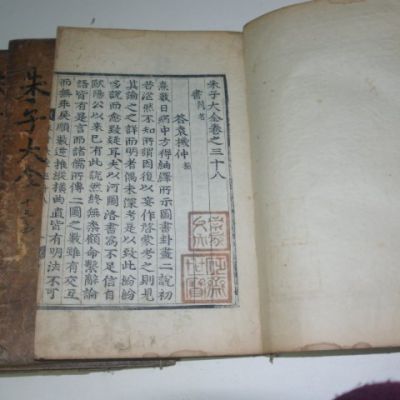 朱子大全卷之三十八
書
答袁機仲
熹數日病中方得紬繹所示圖書卦畫二說初
若茫然不知所謂因復以妄作啓蒙考之則見
其論之之詳而明者偶未深考是以致此紛紛
多說而愈致疑耳夫以河圖洛書爲不足信自
歐陽公以來已有此說然終無柰顧命繫辭論
語皆有是言而諸儒所傳二圖之數雖有交互
而無乖戾順數逆推縱橫曲直皆有明法不可
朱子大全